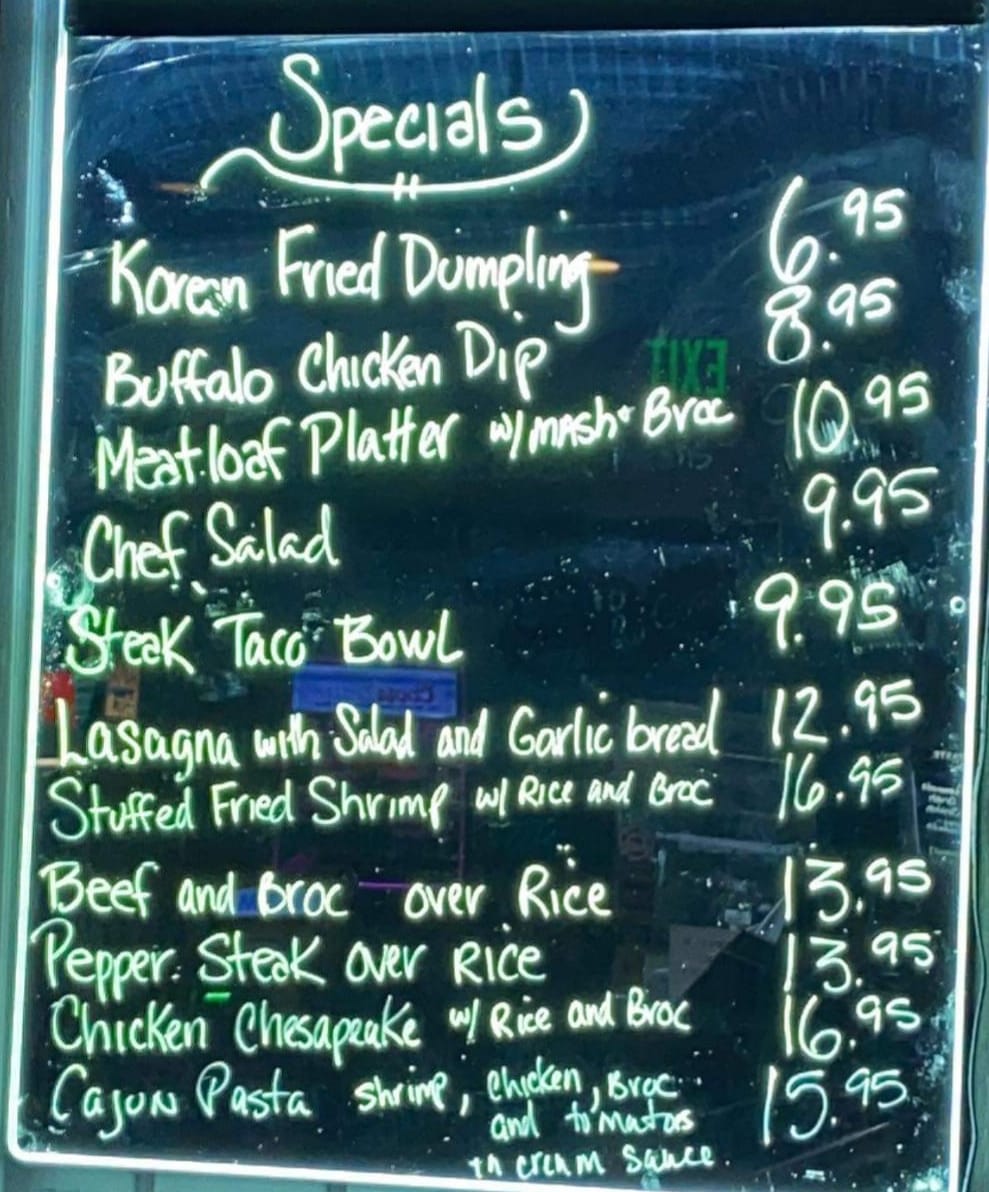 Specials
Korean Fried Dumpling 6.95
Buffalo Chicken Dip 8.95
EXIT
Meatloaf Platter w/ MAsh + Broc 10.95
Chef Salad 9.95
Steak Taco Bowl 9.95
Lasagna with Salad and Garlic bread 12.95
Stuffed Fried Shrimp w/ Rice and Broc 16.95
Beef and Broc over Rice 13.95
Pepper Steak over Rice 13.95
Chicken Chesapeake w/ Rice and Broc 16.95
Cajun Pasta shrimp, chicken, Broc 15.95
and tomators
in cream sauce.